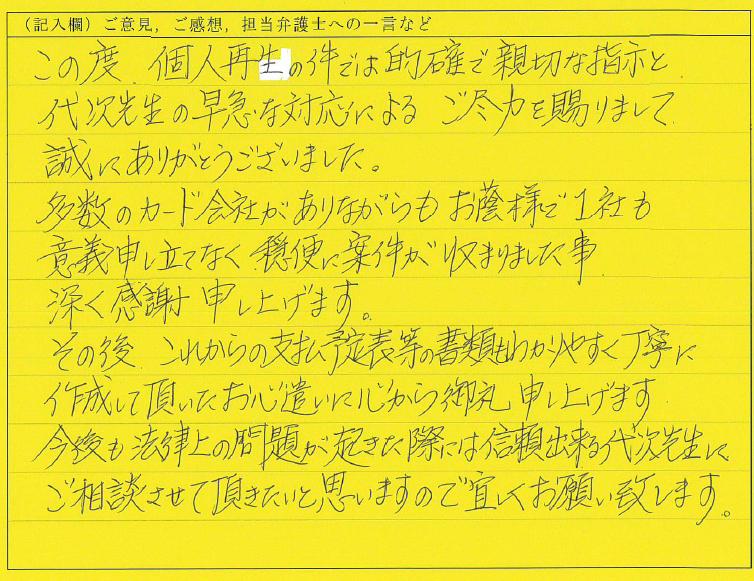 (記入欄)ご意見,ご感想,担当弁護士への一言など
この度、個人再生の件では的確で親切な指示と
代次先生の早急な対応による ご尽力を賜りまして
誠にありがとうございました。
多数のカード会社がありながらも お蔭様で1社も
意義申し立てなく 穏便に案件が収まりました事
深く感謝 申し上げます。
その後、これからの支払予定表等の書類もわかりやすく丁寧に
作成して頂いたお心遣いに心から御礼 申し上げます
今後も 法律上の問題が起きた際には信頼出来る代次先生に
ご相談させて頂きたいと思いますので宜しくお願い致します。